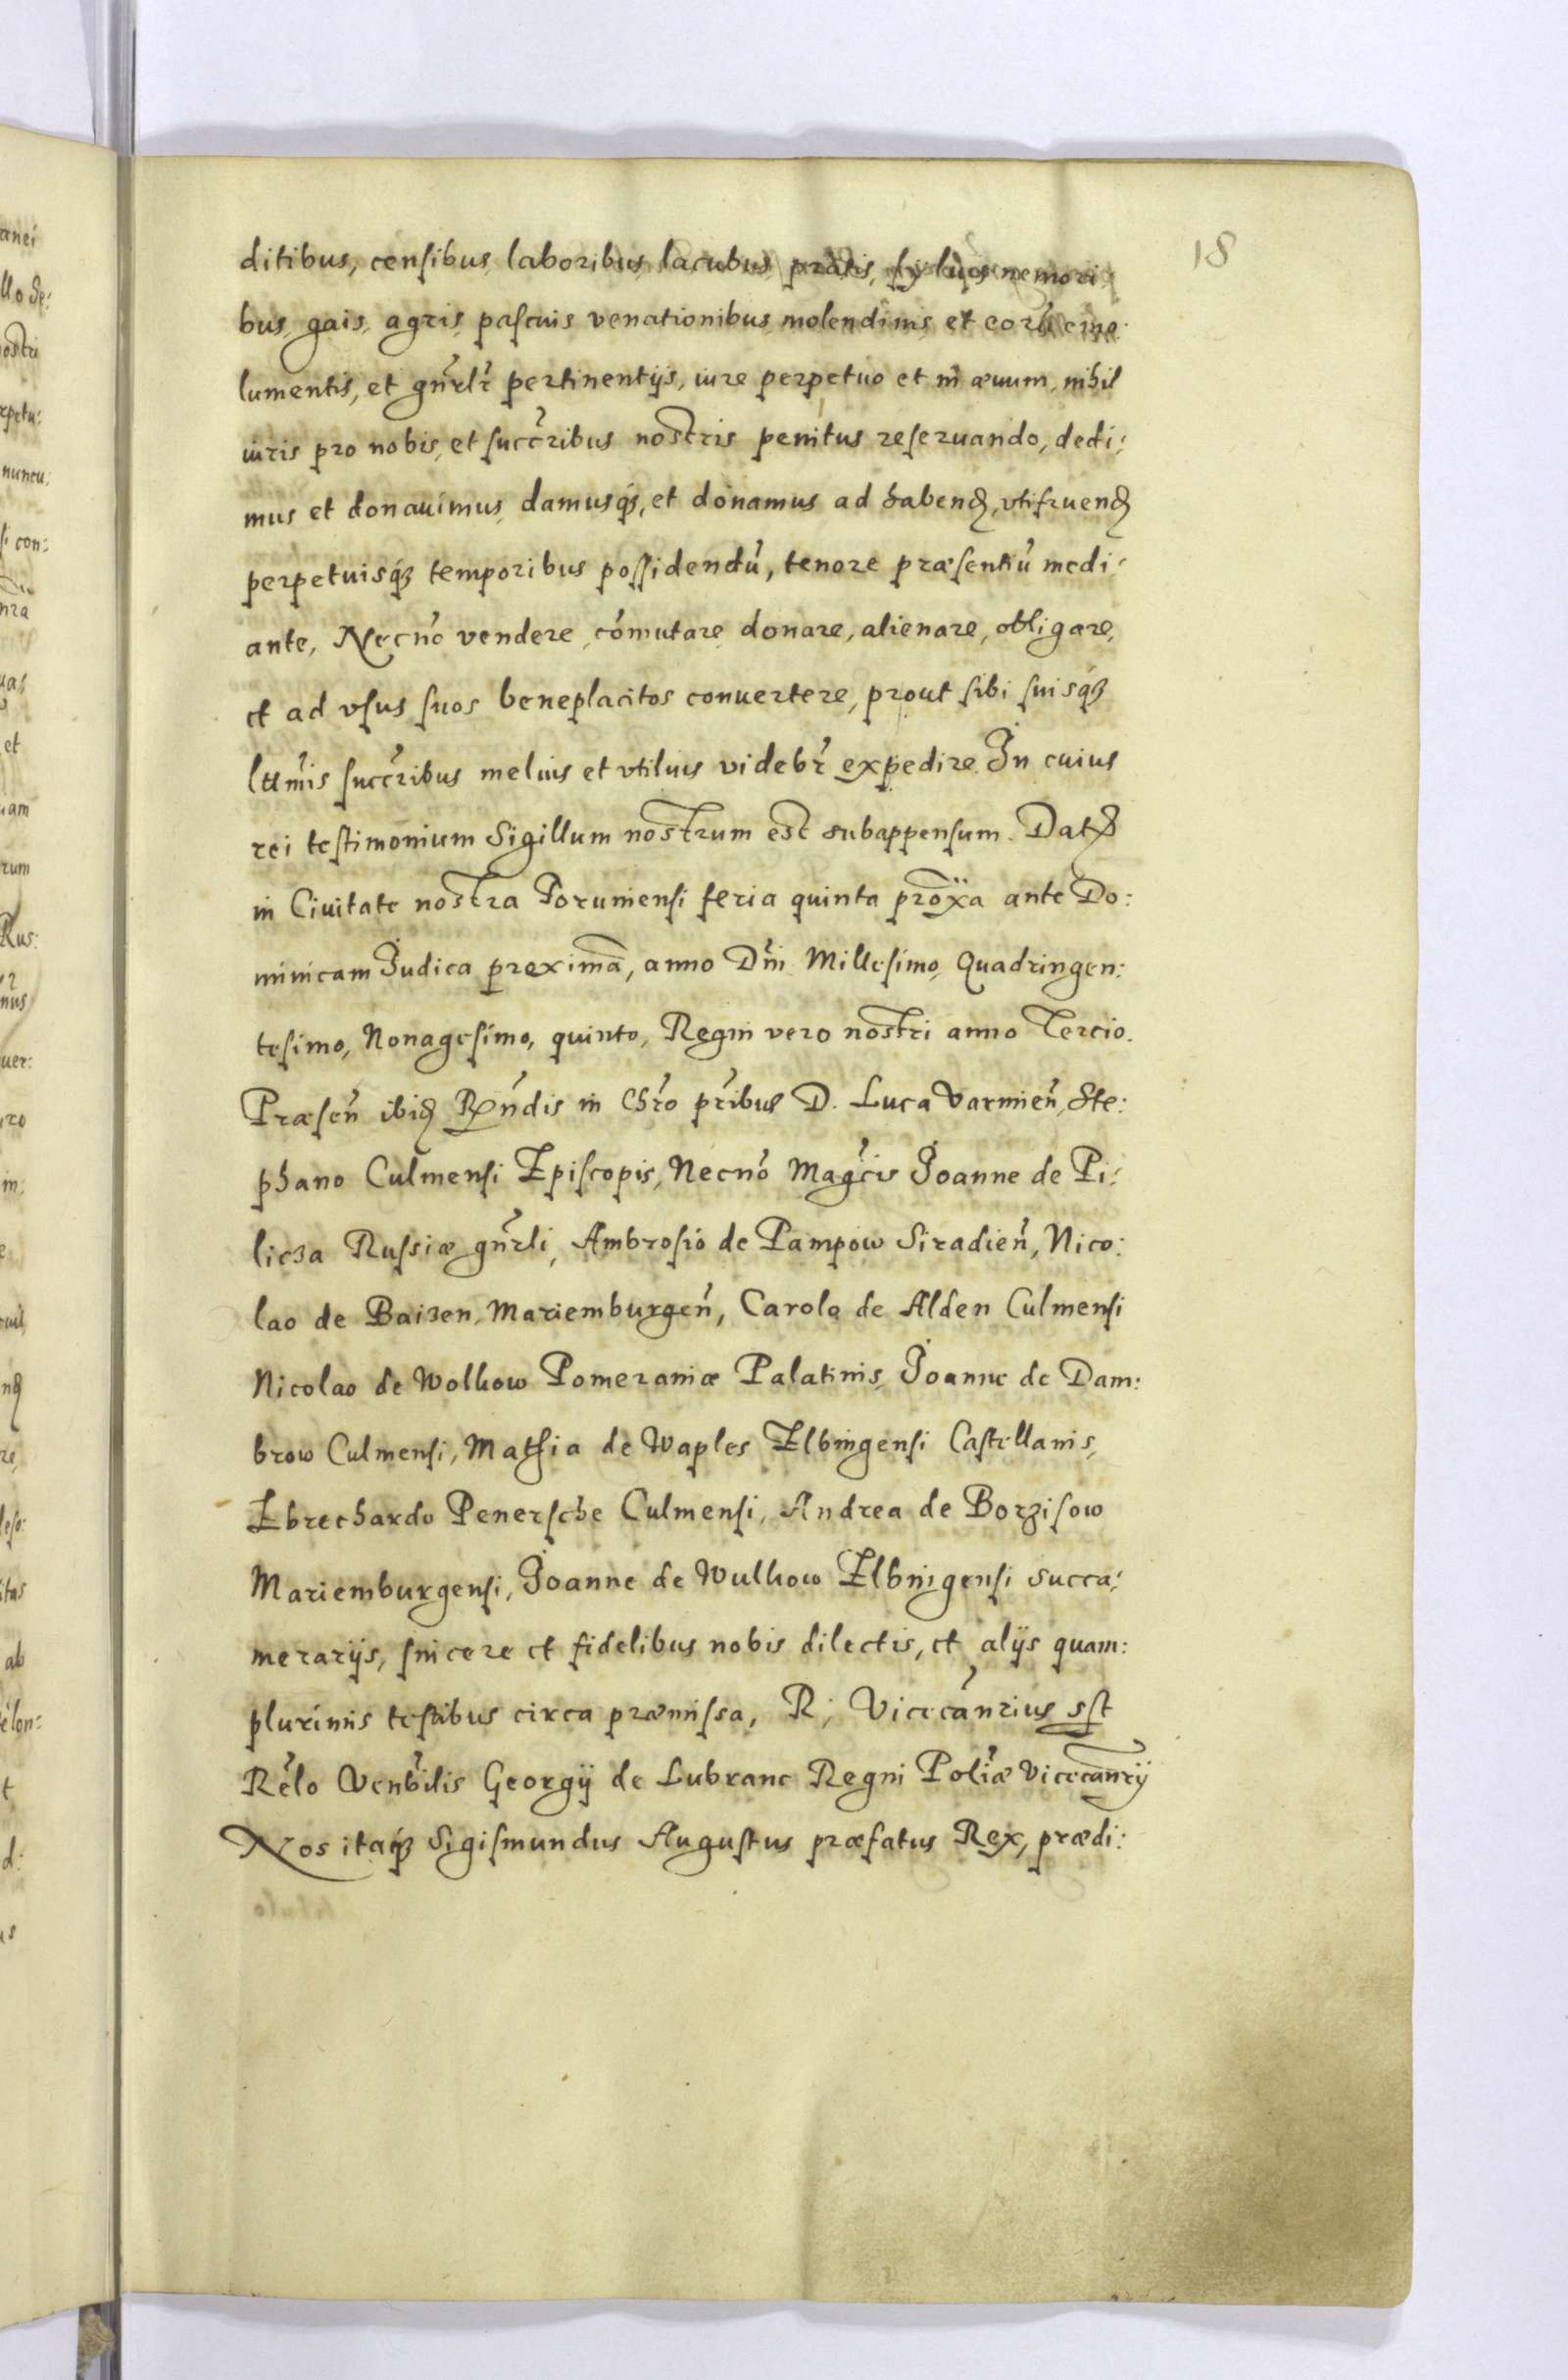 18
ditibus, censibus, laboribus, lacubus, pratis, syluis nemori:
bus, gais, agris, pascuis venationibus, molendinis, et eorũ emo:
lumentis, et gñrlr pertinentijs, iure perpetuo et in æuum, nihil
iuris pro nobis, et succribus nostris penitus reseruando, dedi:
mus et donauimus, damusq₃, et donamus ad habend, vtifruend
perpetuisq₃ temporibus possidendũ, tenore præsentiũ medi:
ante, Necnõ vendere, cõmutare, donare, alienare, obligare,
et ad vsus suos beneplacitos conuertere, prout sibi suisq₃
lttimis succribus melius et vtilius videbr expedire. In cuius
rei testimonium Sigillum nostrum est subappensum. Dat
in Ciuitate nostra Toruniensi feria quinta proxa ante Do:
minicam Judica proximã, anno Dñi Millesimo, Quadringen:
tesimo, Nonagesimo, quinto, Regni vero nostri anno Tercio.
Præseñ ibid Rñdis in Chro pribus D. Luca Varmieñ, Ste:
phano Culmensi Episcopis, Necnõ Magcis Joanne de Pi:
licza Russiæ gñrli, Ambrosio de Pampow Siradieñ, Nico:
lao de Baizen, Mariemburgeñ, Carolo de Alden Culmensi
Nicolao de Wolkow Pomeraniæ Palatinis, Joanne de Dam:
brow Culmensi, Mathia de Waples Elbingensi Castellanis,
Ebrechardo Penersche Culmensi, Andrea de Borzisow
Mariemburgensi, Joanne de Wulkow Elbingensi Succa:
merarijs, sincere et fidelibus nobis dilectis, et alijs quam:
plurimis testibus circa præmissa, R; Vicecanrius sst
Relo Venbilis Georgij de Lubranc Regni Poliæ Vicecanrij
Nos itaq₃ Sigismundus Augustus præfatus Rex, prædi: